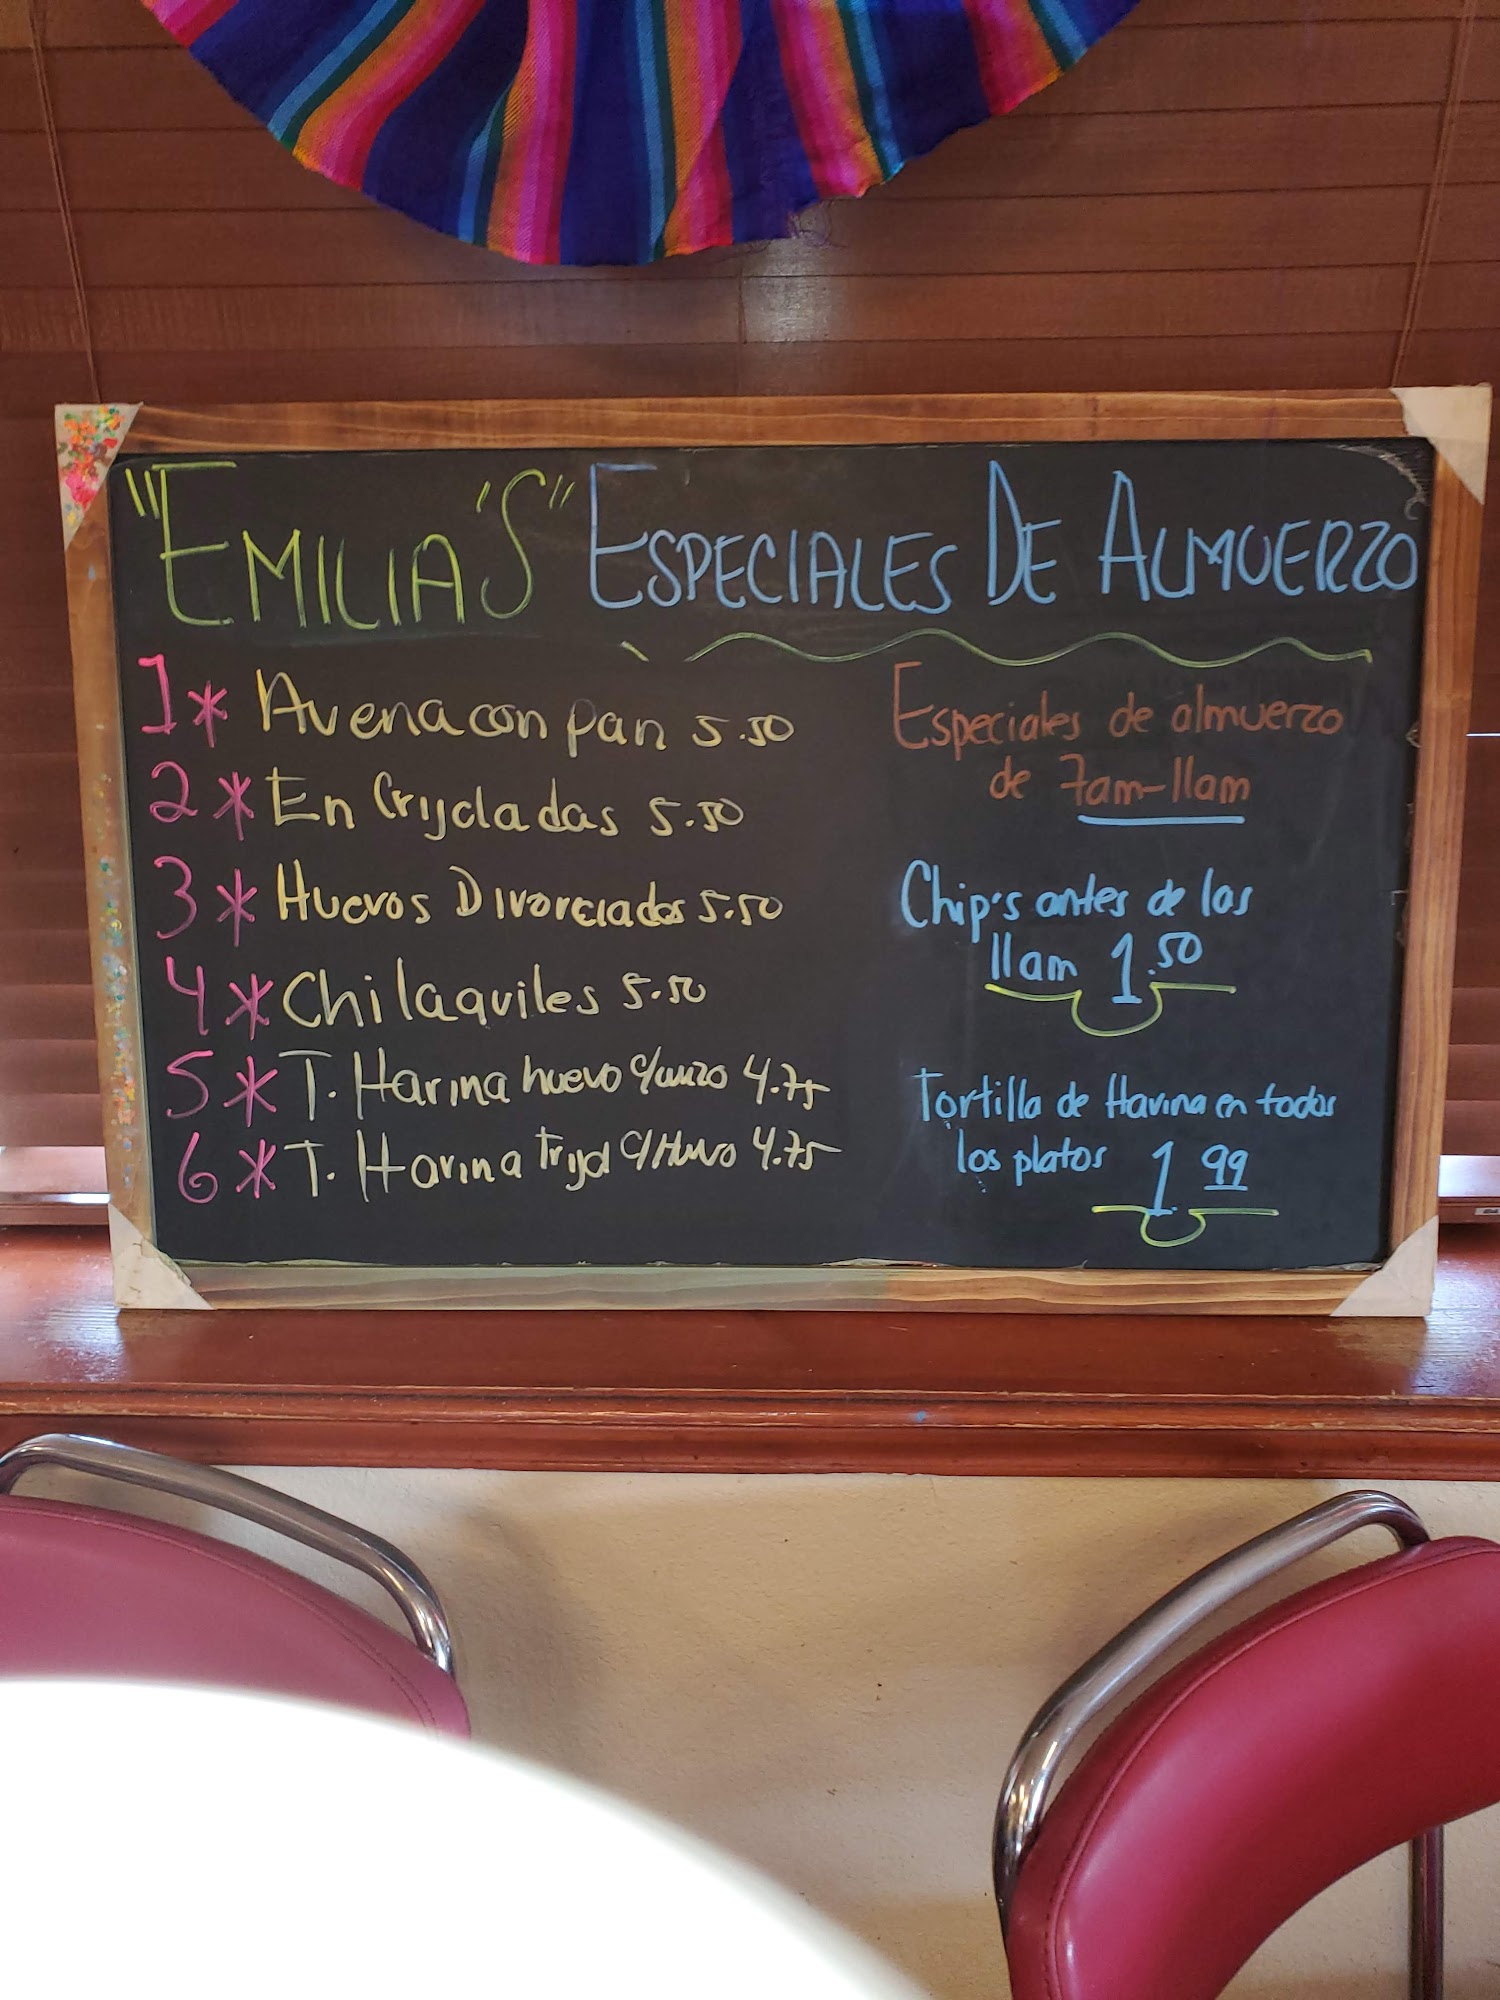 "EMILIA'S" ESPECIALES DE ALMUERZO
1* Avena con pan 5.50
2* En Crijoladas 5.50
3* Huevos Divorciados 5.50
4* Chilaquiles 5.50
5* T. Harina huevo 4.75
6* T. Harina 4.75
Especiales de almuerzo
de 7am-11am
Chip's antes de las
11am 1.50
Tortilla de Harina en todos
los platos 1.99